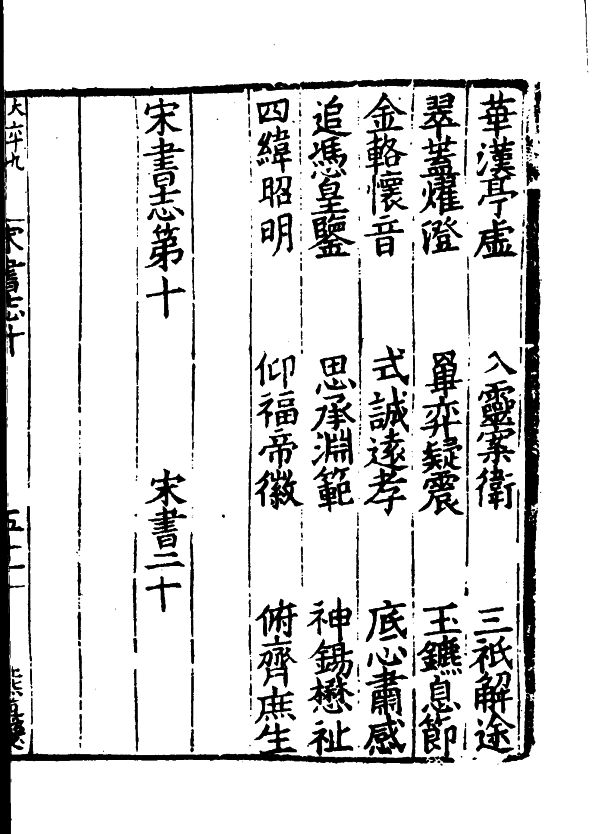 華漢亭虛 入靈案衛 三祇解途
翠蓋燿澄 𦌾弈凝震 玉鑣息節
金輅懷音 式誠遠孝 底心肅感
追馮皇鑒 思承淵範 神錫懋祉
四緯昭明 仰福帝徽 俯齊庶生
宋書志第十 宋書二十
宋書志十